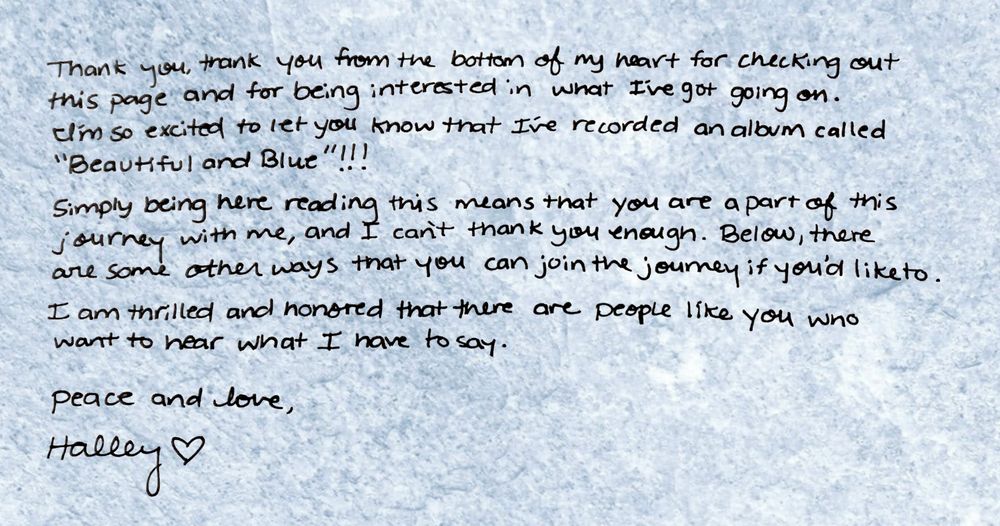 Thank you, thank you from the bottom of my heart for checking out
this page and for being interested in what I've got going on.
I'm so excited to let you know that I've recorded an album called
"Beautiful and Blue"!!!
Simply being here reading this means that you are a part of this
journey with me, and I can't thank you enough. Below, there
are some other ways that you can join the journey if you'd like to.
I am thrilled and honored that there are people like you who
want to hear what I have to say.
Peace and love,
Halley ♡